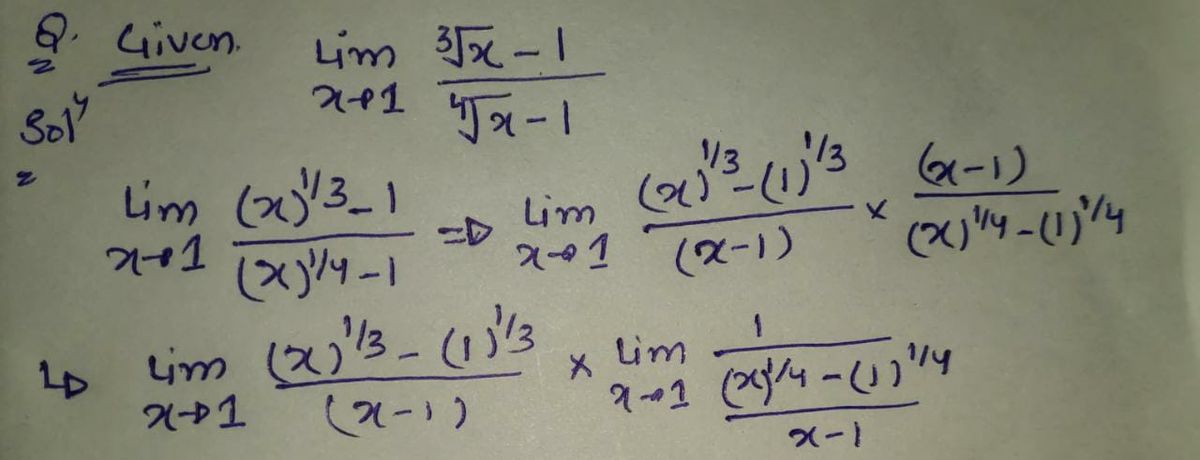 Q. Given. lim x→1 (∛x - 1)/(∜x - 1)
Solⁿ
lim x→1 ((x)^1/3 - 1)/((x)^1/4 - 1) ⇒ lim x→1 ((x)^1/3 - (1)^1/3)/(x-1) × (x-1)/((x)^1/4 - (1)^1/4)
↳ lim x→1 ((x)^1/3 - (1)^1/3)/(x-1) × lim x→1 1/(((x)^1/4 - (1)^1/4)/(x-1))